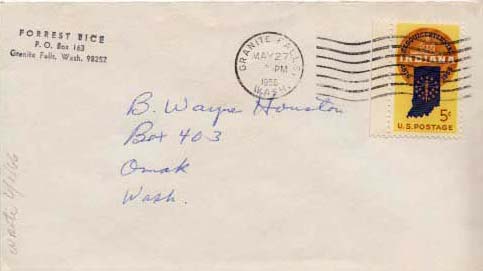 FORREST BICE
P. O. Box 163
Granite Falls, Wash. 98252
GRANITE FALLS
MAY 27
PM
WASH.
INDIANA
5¢
U.S. POSTAGE
B. Wayne Houston
Box 403
Omak
Wash.